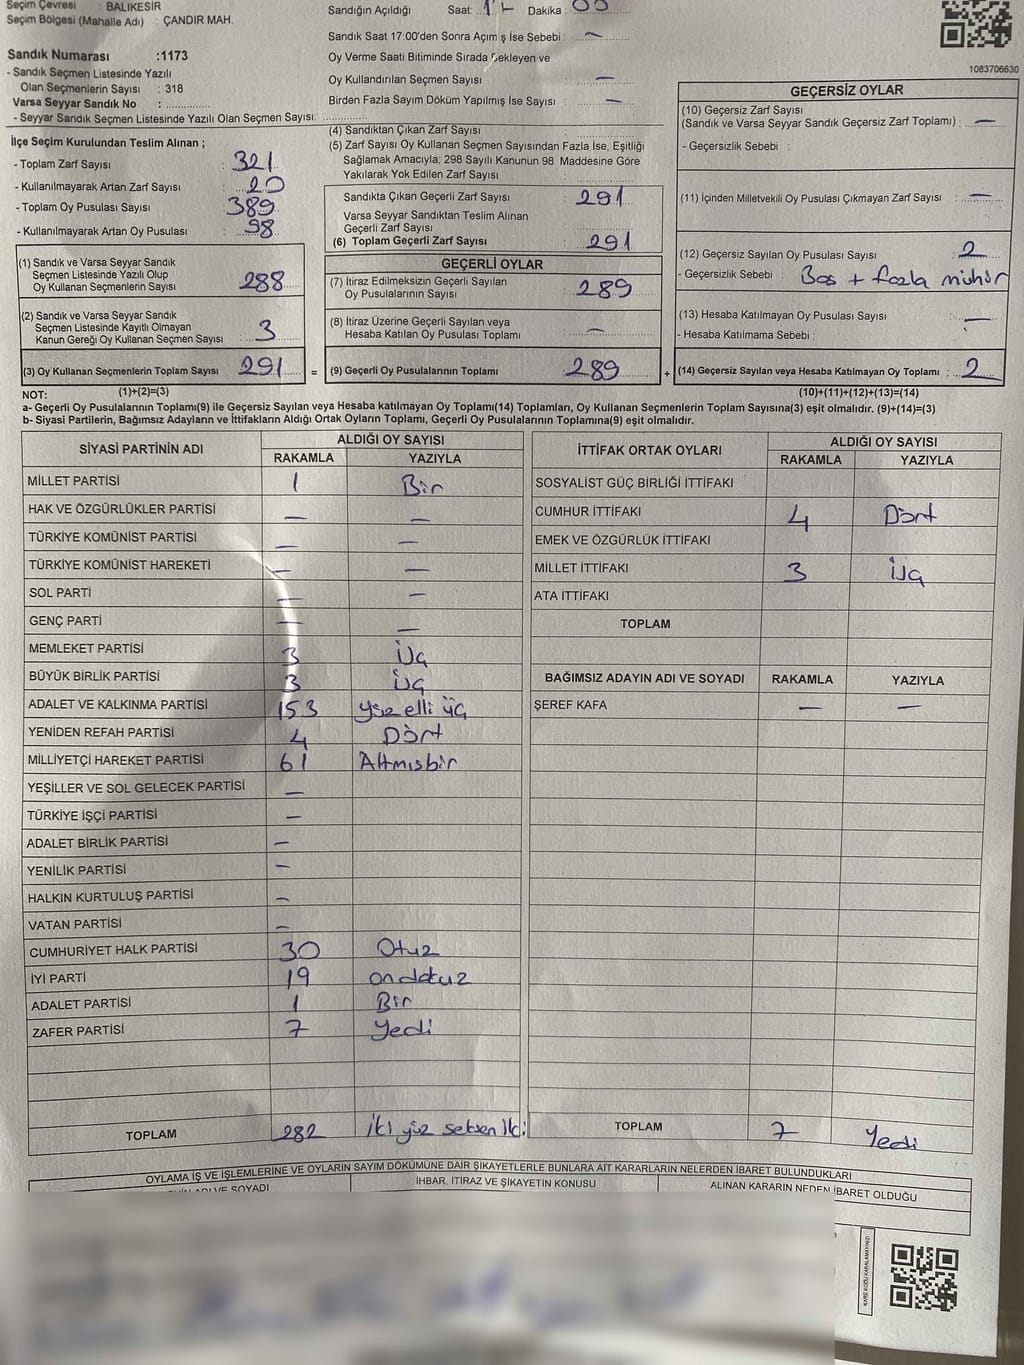 Seçim Çevresi : BALIKESİR
Seçim Bölgesi (Mahalle Adı) : ÇANDIR MAH.
Sandık Numarası :1173
- Sandık Seçmen Listesinde Yazılı
Olan Seçmenlerin Sayısı : 318
Varsa Seyyar Sandık No :
- Seyyar Sandık Seçmen Listesinde Yazılı Olan Seçmen Sayısı:
İlçe Seçim Kurulundan Teslim Alınan ;
- Toplam Zarf Sayısı : 321
- Kullanılmayarak Artan Zarf Sayısı : 20
- Toplam Oy Pusulası Sayısı : 389
- Kullanılmayarak Artan Oy Pusulası : 98
(1) Sandık ve Varsa Seyyar Sandık
Seçmen Listesinde Yazılı Olup
Oy Kullanan Seçmenlerin Sayısı : 288
(2) Sandık ve Varsa Seyyar Sandık
Seçmen Listesinde Kayıtlı Olmayan
Kanun Gereği Oy Kullanan Seçmen Sayısı : 3
(3) Oy Kullanan Seçmenlerin Toplam Sayısı : 291
Sandığın Açıldığı Saat: Dakika :
Sandık Saat 17:00'den Sonra Açım ş İse Sebebi : —
Oy Verme Saati Bitiminde Sırada Bekleyen ve
Oy Kullandırılan Seçmen Sayısı : —
Birden Fazla Sayım Döküm Yapılmış İse Sayısı : —
(4) Sandıktan Çıkan Zarf Sayısı :
(5) Zarf Sayısı Oy Kullanan Seçmen Sayısından Fazla İse, Eşitliği
Sağlamak Amacıyla; 298 Sayılı Kanunun 98. Maddesine Göre
Yakılarak Yok Edilen Zarf Sayısı :
Sandıkta Çıkan Geçerli Zarf Sayısı : 291
Varsa Seyyar Sandıktan Teslim Alınan
Geçerli Zarf Sayısı :
(6) Toplam Geçerli Zarf Sayısı : 291
GEÇERLİ OYLAR
(7) İtiraz Edilmeksizin Geçerli Sayılan
Oy Pusulalarının Sayısı : 289
(8) İtiraz Üzerine Geçerli Sayılan veya
Hesaba Katılan Oy Pusulası Toplamı : —
= (9) Geçerli Oy Pusulalarının Toplamı : 289 +
1083706630
GEÇERSİZ OYLAR
(10) Geçersiz Zarf Sayısı
(Sandık ve Varsa Seyyar Sandık Geçersiz Zarf Toplamı) : —
- Geçersizlik Sebebi :
(11) İçinden Milletvekili Oy Pusulası Çıkmayan Zarf Sayısı : —
(12) Geçersiz Sayılan Oy Pusulası Sayısı : 2
- Geçersizlik Sebebi : Boş + fazla mühür
(13) Hesaba Katılmayan Oy Pusulası Sayısı : —
- Hesaba Katılmama Sebebi :
(14) Geçersiz Sayılan veya Hesaba Katılmayan Oy Toplamı : 2
NOT: (1)+(2)=(3) (10)+(11)+(12)+(13)=(14)
a- Geçerli Oy Pusulalarının Toplamı(9) ile Geçersiz Sayılan veya Hesaba katılmayan Oy Toplamı(14) Toplamları, Oy Kullanan Seçmenlerin Toplam Sayısına(3) eşit olmalıdır. (9)+(14)=(3)
b- Siyasi Partilerin, Bağımsız Adayların ve İttifakların Aldığı Ortak Oyların Toplamı, Geçerli Oy Pusulalarının Toplamına(9) eşit olmalıdır.
SİYASİ PARTİNİN ADI ALDIĞI OY SAYISI
RAKAMLA YAZIYLA
MİLLET PARTİSİ 1 Bir
HAK VE ÖZGÜRLÜKLER PARTİSİ — —
TÜRKİYE KOMÜNİST PARTİSİ — —
TÜRKİYE KOMÜNİST HAREKETİ — —
SOL PARTİ — —
GENÇ PARTİ — —
MEMLEKET PARTİSİ 3 Üç
BÜYÜK BİRLİK PARTİSİ 3 Üç
ADALET VE KALKINMA PARTİSİ 153 Yüz elli üç
YENİDEN REFAH PARTİSİ 4 Dört
MİLLİYETÇİ HAREKET PARTİSİ 61 Altmışbir
YEŞİLLER VE SOL GELECEK PARTİSİ —
TÜRKİYE İŞÇİ PARTİSİ —
ADALET BİRLİK PARTİSİ —
YENİLİK PARTİSİ —
HALKIN KURTULUŞ PARTİSİ —
VATAN PARTİSİ —
CUMHURİYET HALK PARTİSİ 30 Otuz
İYİ PARTİ 19 ondokuz
ADALET PARTİSİ 1 Bir
ZAFER PARTİSİ 7 Yedi
TOPLAM 282 İki yüz seksen iki
İTTİFAK ORTAK OYLARI ALDIĞI OY SAYISI
RAKAMLA YAZIYLA
SOSYALİST GÜÇ BİRLİĞİ İTTİFAKI
CUMHUR İTTİFAKI 4 Dört
EMEK VE ÖZGÜRLÜK İTTİFAKI
MİLLET İTTİFAKI 3 Üç
ATA İTTİFAKI
TOPLAM
BAĞIMSIZ ADAYIN ADI VE SOYADI RAKAMLA YAZIYLA
ŞEREF KAFA — —
TOPLAM 7 Yedi
OYLAMA İŞ VE İŞLEMLERİNE VE OYLARIN SAYIM DÖKÜMÜNE DAİR ŞİKAYETLERLE BUNLARA AİT KARARLARIN NELERDEN İBARET BULUNDUKLARI
ADI VE SOYADI İHBAR, İTİRAZ VE ŞİKAYETİN KONUSU ALINAN KARARIN NEDEN İBARET OLDUĞU
KARE KODU KARALAMAYINIZ!